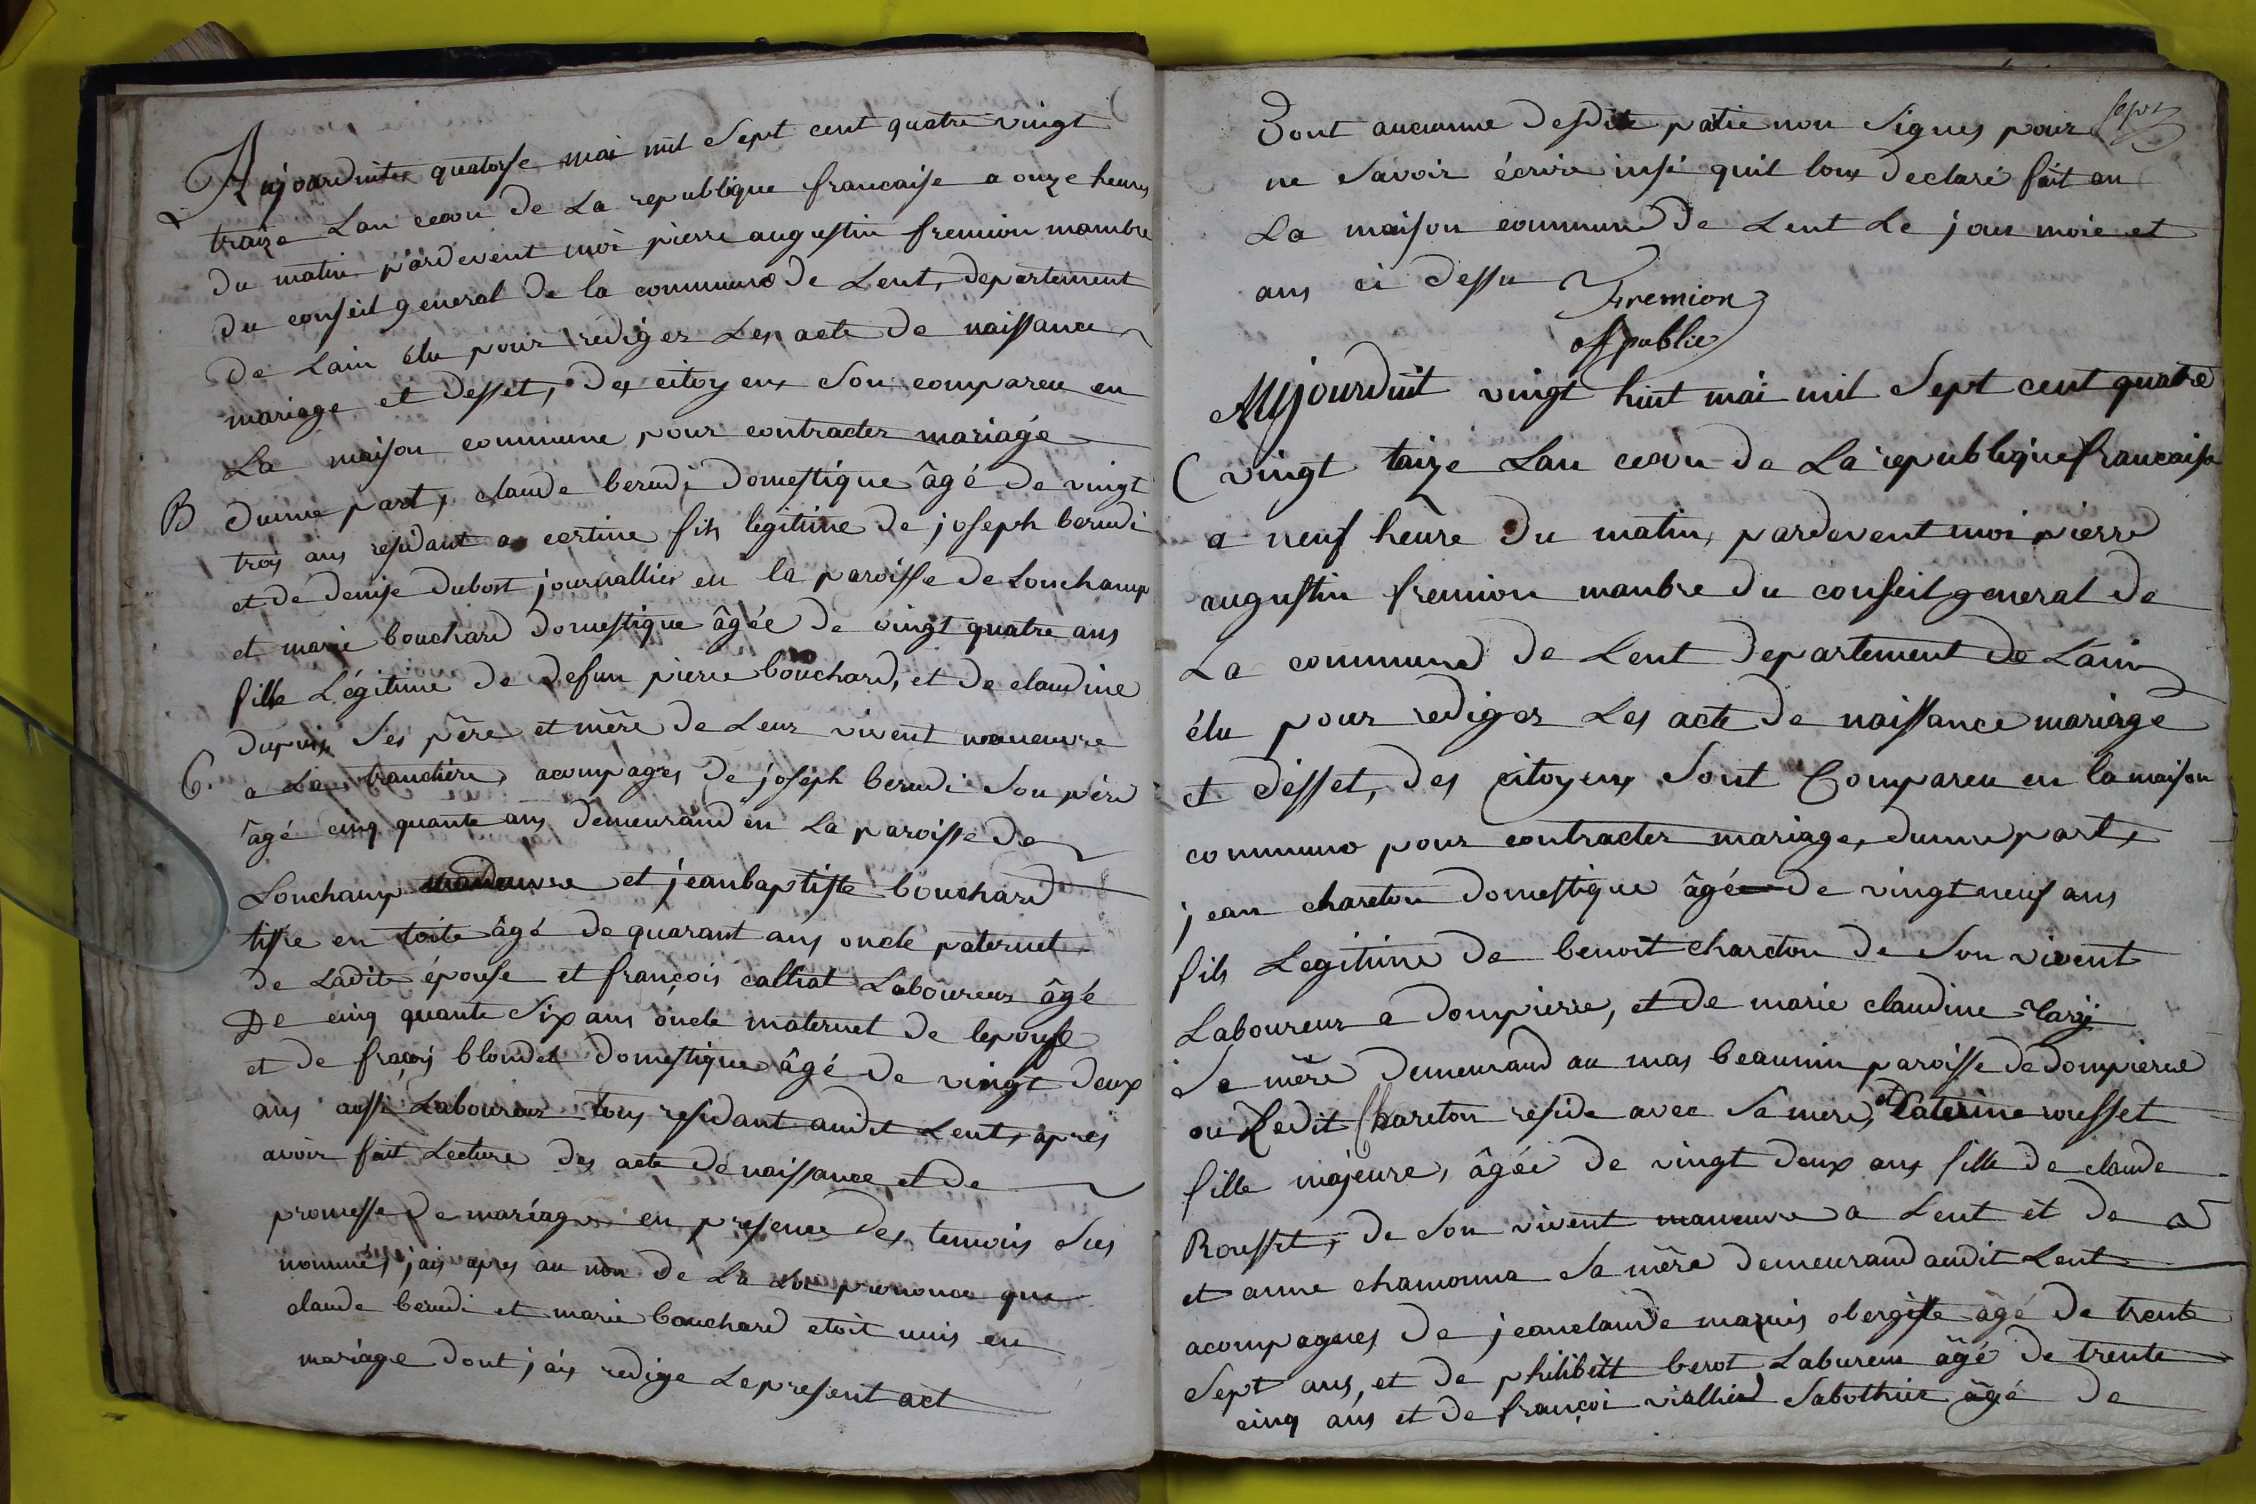 Aujourduit quatorse mai mil Sept cent quatre vingt
traize Lan second de La republique francaise a onze heures
du matin pardevent moi pierre augustin fremion mambre
du conseil general de la commune de Lent, departement
de Lain élu pour rediger Les acte de naissance
mariage et desset, des citoyens Son compareu en
La maison commune pour contracter mariage
B
dunne part, claude berudi domestique âgé de vingt
trois ans residant a certine fils legitime de joseph berudi
et de denise dubost journallier en la paroisse de Lonchamp
et marie bouchard domestique âgée de vingt quatre ans
fille Légitime de defun pierre bouchard, et de claudine
dupuis Ses père et mère de Leur vivent maneuvre
6.
a La tranchère, acompages de joseph berudi Son père
âgé cinq quante ans demeurand en La paroisse de
Lonchamp et jeanbaptiste bouchard
tisse en toite âgé de quarant ans oncle paternel
de Ladite épouse et françois calliat Laboureur âgé
De cinq quante Six ans oncle maternel de lepouse
et de fraçois blondet domestique âgé de vingt deux
ans aussi Laboureur tous residant audit Lent, apres
avoir fait Lecture des acte de naissance et de
promesse de mariage en presence des temoins Sus
nommés jais apres au nom de La Loi prononce que
claude berudi et marie bouchard etoit unis en
mariage dont jais redige Lepresent act
Dont aucunne desdite patie non Signes pour
ne Savoir écrire insi quil lonx declaré fait en
La maison commune de Lent Le jour mois et
ans ci dessu
fremion
off public
Aujourduit vingt huit mai mil Sept cent quatre
vingt taize Lan second de La republique francaise
a neuf heure du matin, pardevent moi pierre
augustin fremion manbre du conseil general de
La commune de Lent departement de Lain
élu pour rediger Les acte de naissance mariage
et désset, des citoyens Sont Compareu en la maison
commune pour contracter mariage, dunne part,
jean chareton domestique âgée de vingt neuf ans
fils Legitime de benoit chareton de Son vivent
Laboureur a dompierre, et de marie claudine
Sa mère demeurand au mas beaunin paroisse de dompierre
ou Ledit Chareton reside avec Sa mere, et Caterine rousset
fille majeure, âgée de vingt deux ans fille de claude
Rousset, de Son vivent maneuvre a Lent et de
et anne chamonna Sa mère demeurand audit Lent
acompagnes de jeanclaude maruis obergiste âgé de trente
Sept ans, et de philibett berot Labureur âgé de trente
cinq ans et de françoi viallier Sabothier âgé de